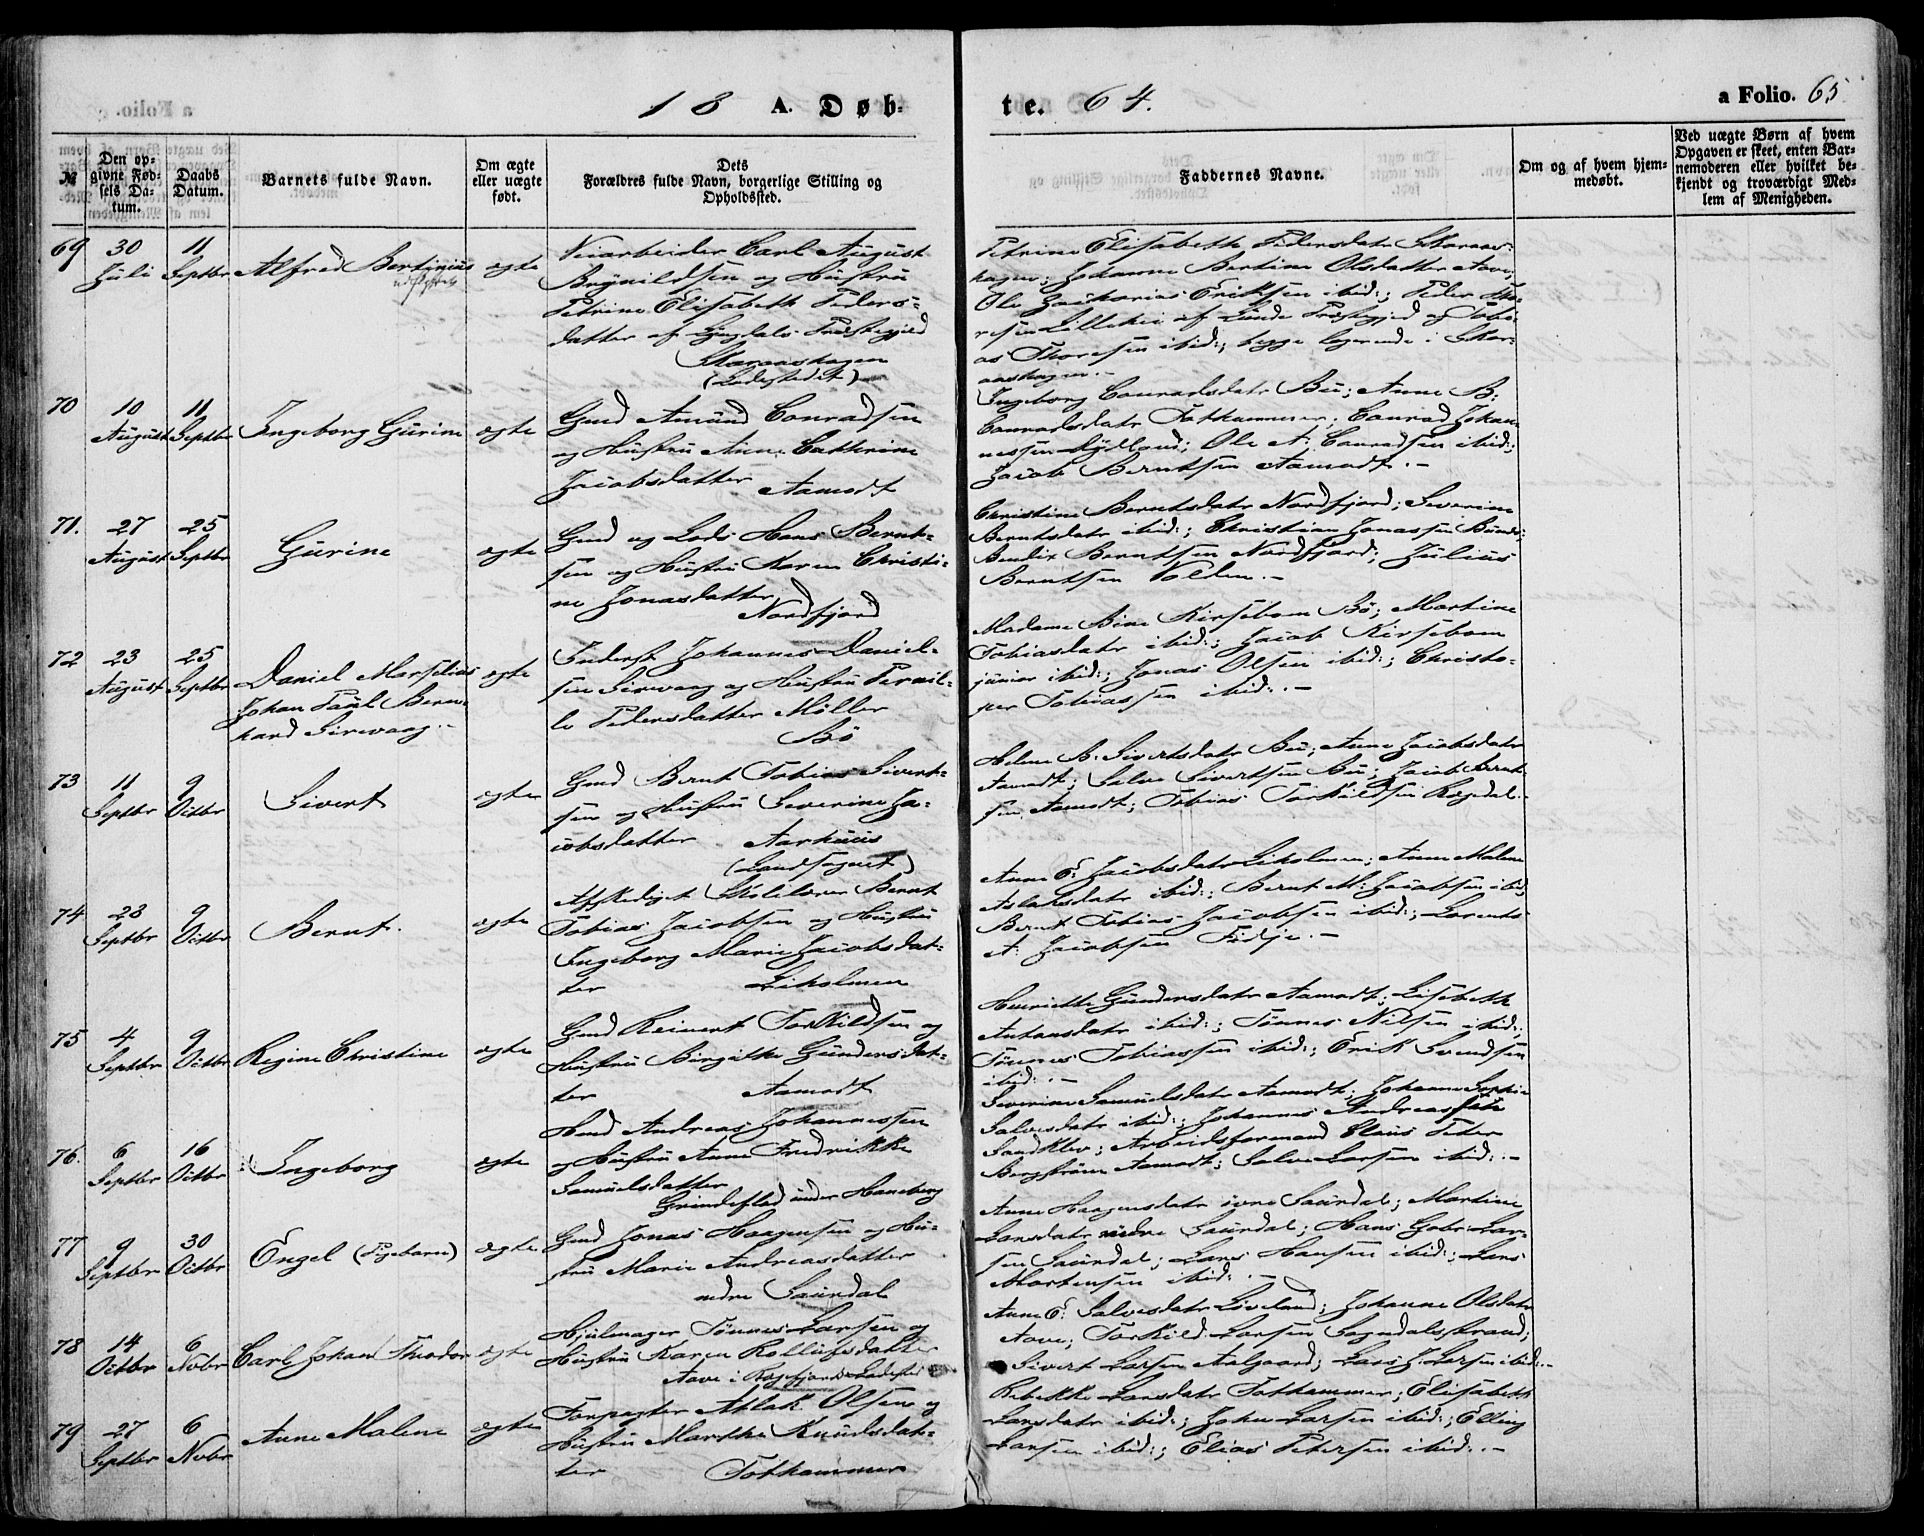 18 A. Døb-
te. 64. a Folio. 65
№
Den op-
givne Fød-
sels Da-
tum.
Daabs
Datum.
Barnets fulde Navn.
Om ægte
eller uægte
født.
Dets
Forældres fulde Navn, borgerlige Stilling og
Opholdssted.
Faddernes Navne.
Om og af hvem hjem-
medøbt.
Ved uægte Børn af hvem
Opgaven er skeet, enten Bar-
nemoderen eller hvilket be-
kjendt og troværdigt Med-
lem af Menigheden.
69 30 Juli 11 Septbr Alfred Bertinius ægte
Veiarbeider Carl August
Brynildsen og Hustru
Petrine Elisabeth Peders-
datter af Præstegjeld
(Ladestedet)
Petrine Elisabeth Pedersdatr
Johanne Bertine Olsdatter Aave;
Ole Zackarias Eriksen ibid:; Peder Tho-
resen af Lunde Præstegjeld og Tobi-
as Thoresen ibid:; begge logerende i
70 10 August 11 Septbr Ingeborg Gurine ægte
Gmd Amund Conradsen
og Hustru Anne Cathrine
Jacobsdatter Aamodt
Ingeborg Conradsdatr Bu; Anne B:
Conradsdatr Fothammer; Conrad Johan-
nessen Ole A: Conradsen ibid:;
Jacob Berntsen Aamodt.-
71. 27 August 25 Septbr Gurine ægte
Gmd og Lods Hans Bernt-
sen og Hustru Karen Christi-
ne Jonasdatter
Nordfjord
Christine Berntsdatr Nordfjord; Severine
Berntsdatr ibid:; Christian Jonassen
Bendix Berntsen Nordfjord; Julius
Berntsen Volden.-
72 23 August 25 Septbr Daniel Marselius ægte
Johan Paul Bern-
hard Sirevaag.-
Inderst Johannes Daniel-
sen Sirevaag og Hustru Pernil-
le Pedersdatter Møller
Bö
Madame Kirsebom Bö; Martine
Tobiasdatr ibid:; Jacob Kirsebom
junior ibid:; Jonas Olsen ibid:; Christo-
pher Tobiassen ibid:.-
73 11 Septbr 9 Octbr Sivert ægte
Gmd Bernt Tobias Sivert-
sen og Hustru Severine Ja-
cobsdatter Aarhuus
(Landsognet)
Helene B. Sivertsdatr Bu; Anne Jacobsdatr
Aamodt; Salve Sivertsen Bu; Jacob Bernt-
sen Aamodt; Tobias Torkildsen
74 23 Septbr 9 Octbr Bernt. ægte
Afskediget Skolelærer Bernt
Tobias Jacobsen og Hustru
Ingeborg Marie Jacobsdat-
ter Liholmen
Anne E: Jacobsdatr Liholmen; Anne Malene
Aslaksdatr ibid:; Bernt M: Jacobsen ibid
Bernt Tobias Jacobsen ibid:; Lorents
A. Jacobsen Fidje.-
75 4 Septbr 9 Octbr Regine Christine ægte
Gmd Reinert Torkildsen og
Hustru Birgitte Gundersdat-
ter Aamodt
Henriette Gundersdatr Aamodt; Lisebeth
Antonsdatr ibid:; Tønnes Nilsen ibid:;
Tønnes Tobiassen ibid:; Erik Svendsen
ibid:.-
76. 6 Septbr 16 Octbr Ingeborg ægte
Hmd Andreas Johannessen
og Hustru Anne Fredrikke
Samuelsdatter
under Haneberg
Severine Samuelsdatr Aamodt; Johanne Sophie
Salvesdatr ibid:; Johannes Andreas
Sandklev; Arbeidsformand Claus Peter
Bergstrøm Aamodt; Salve Larsen ibid:.-
77 9 Septbr 30 Octbr Engel (Pigebarn) ægte
Gmd Jonas Haagensen og Hu-
stru Marie Andreasdatter
nedre Saurdal
Anne Haagensdatr øvre Saurdal; Martine
Larsdatr nedre Saurdal; Hans Gabr. Lar-
sen Saurdal; Lars Hansen ibid:; Lars
Mortensen ibid:.-
78 14 Octbr 6 Novbr Carl Johan Theodor ægte
Hjulmager Tönnes Larsen og
Hustru Karen Rollufsdatter
Aave i Rægefjords Ladested
Anne E: Salvesdatr Løveland; Johanne Olsdatr
Aave; Torkild Larsen Sogndalsstrand;
Sivert Larsen Aalgaard; Lars J. Larsen ibid:.-
79 27 Septbr 6 Novbr Anne Malene ægte
Forpagter Aslak Olsen og
Hustru Marthe Knudsdat-
ter Fothammer
Rebekke Larsdatr Fothammer; Elisabeth
Larsdatr ibid:; John Larsen ibid:; Elling
Larsen ibid:; Elias Petersen ibid:.-